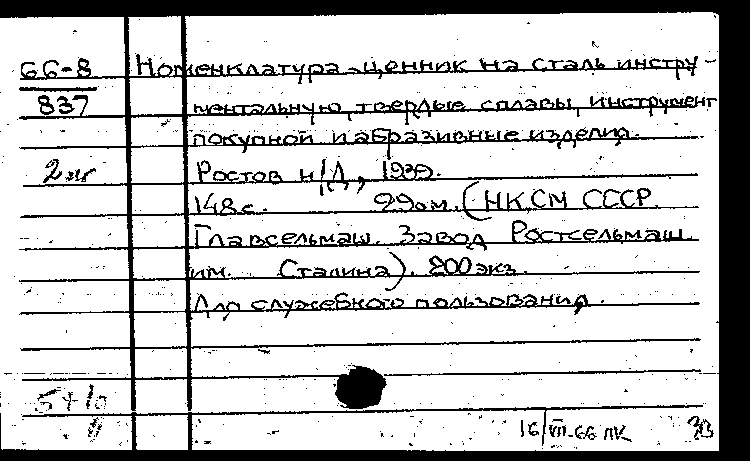 66-8
837
Номенклатура-ценник на сталь инстру-
ментальную, твердые сплавы, инструмент
покупной и абразивные изделия.
2 эк
Ростов н/Д, 1939.
148 с. 29 см. (НКСМ СССР.
Главсельмаш. Завод Ростсельмаш
им. Сталина). 200 экз.
Для служебного пользования.
16/VII-66 ПК